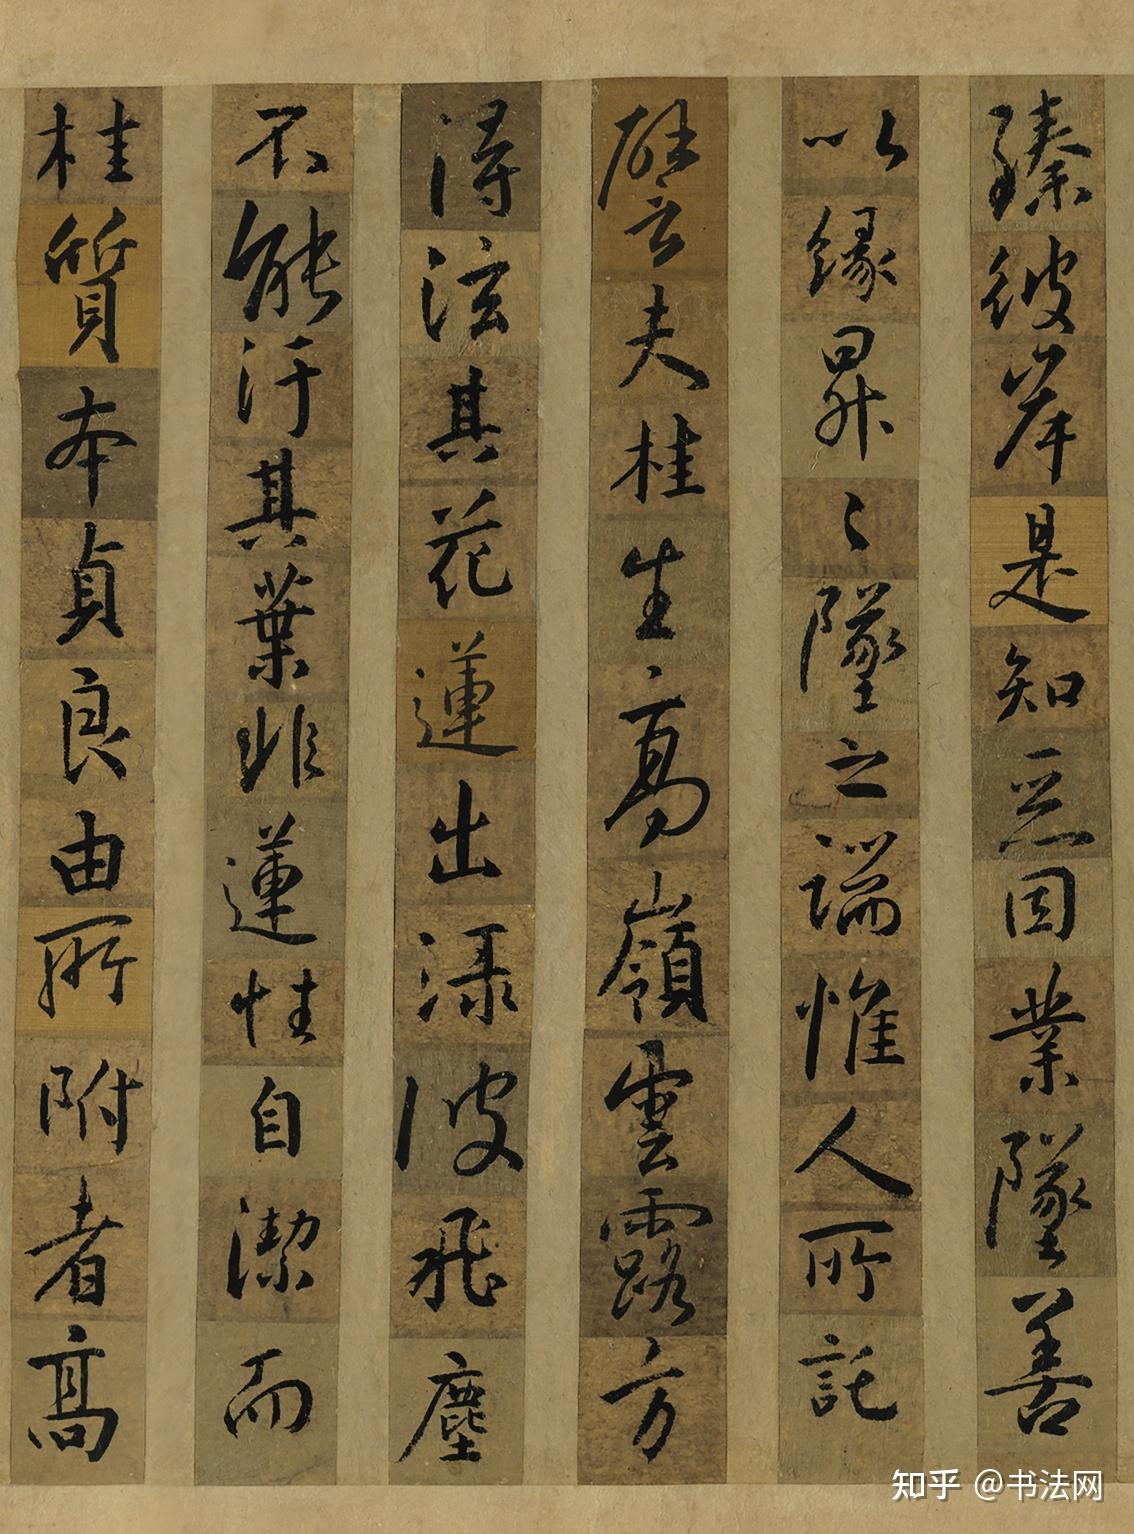 臻彼岸是知惡因業墜善
以緣昇々墜之端惟人所託
譬夫桂生高嶺雲露方
得泫其花蓮出淥波飛塵
不能汙其葉非蓮性自潔而
桂質本貞良由所附者高
知乎 @书法网